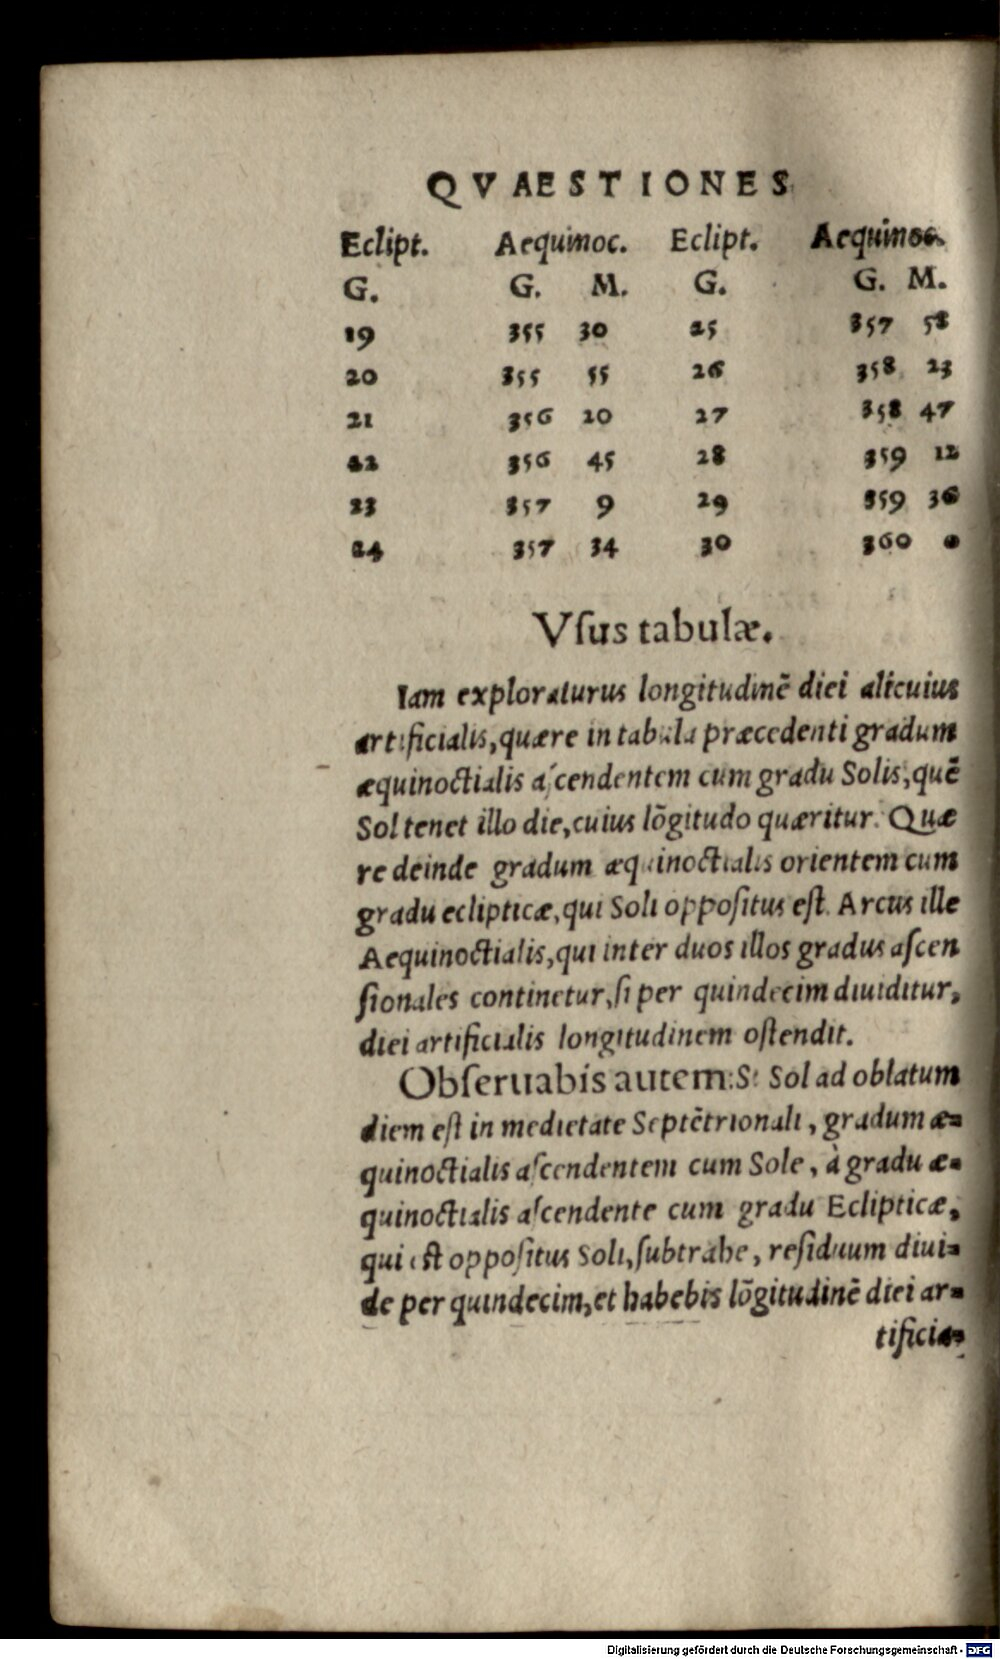 QVAESTIONES
Eclipt. Aequinoc. Eclipt. Aequinoc.
G. G. M. G. G. M.
19 355 30 25 357 58
20 355 55 26 358 23
21 356 20 27 358 47
22 356 45 28 359 12
23 357 9 29 359 36
24 357 34 30 360 0
Vſus tabulæ.
Iam exploraturus longitudinẽ diei alicuius
artificialis, quære in tabula præcedenti gradum
æquinoctialis aſcendentem cum gradu Solis, quẽ
Sol tenet illo die, cuius lõgitudo quæritur. Quæ
re deinde gradum æquinoctialis orientem cum
gradu eclipticæ, qui Soli oppoſitus eſt. Arcus ille
Aequinoctialis, qui inter duos illos gradus aſcen
ſionales continetur, ſi per quindecim diuiditur,
diei artificialis longitudinem oſtendit.
Obſeruabis autem: Si Sol ad oblatum
diem eſt in medietate Septẽtrionali, gradum æ=
quinoctialis aſcendentem cum Sole, à gradu æ=
quinoctialis aſcendente cum gradu Eclipticæ,
qui eſt oppoſitus Soli, ſubtrahe, reſiduum diui=
de per quindecim, et habebis lõgitudinẽ diei ar=
tificia=
Digitalisierung gefördert durch die Deutsche Forschungsgemeinschaft - DFG